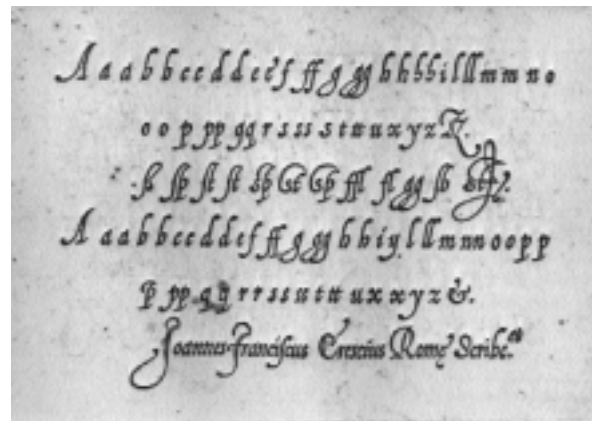 A a a b b c c d d e e f ff g gg h h b b i l ll m m n o
o o p pp gq r s s s s t tt u x y z &.
ſb ſp ſt ſt sp Ct Cp ffl fl gg ſb
A a a b b c c d d e f ff g gg b b i y l ll m m n o o p p
p pp q q r r s s s u t tt u x x y z &.
Joannes Franciscus Cresci us Romę Scribe.